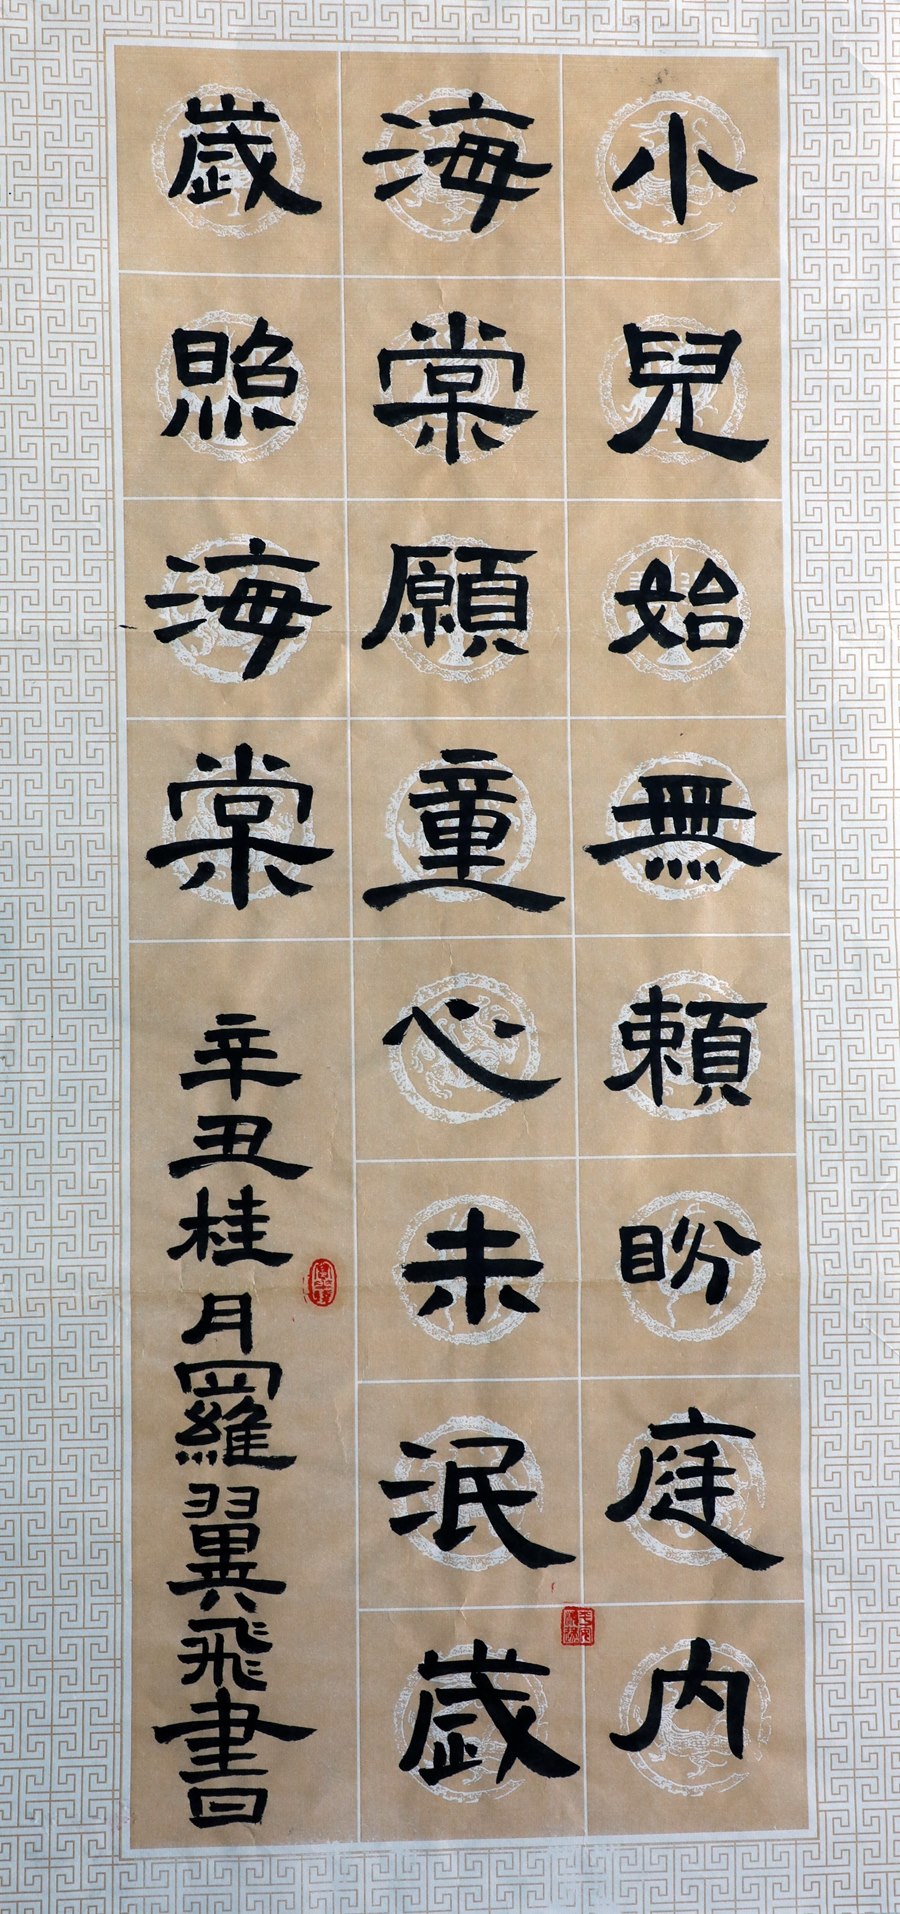 小兒始無賴盼庭内
海棠願童心未泯歲
歲照海棠
辛丑桂月羅翼飛書